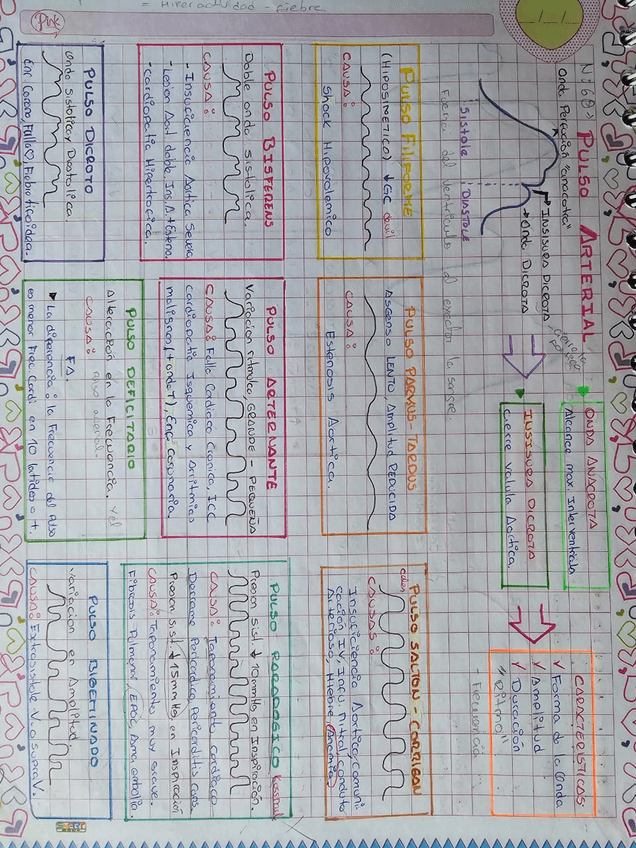 = Hiperactividad - Fiebre
Pink
N: 60x'
PULSO ARTERIAL
Onda Percucion "anacrota"
Incisura Dicrota
Onda Dicrota
Sistole
Diastole
Forma del Ventriculo al eyectar la sangre.
ONDA ANACROTA
Alcance max. Interventricula
INSISURA DICROTA
Cierre valvula Aortica.
CARACTERISTICAS:
✓ Forma de la Onda
✓ Amplitud
✓ Duración
Ritmo
- Frecuencia
PULSO FILIFORME
(HIPOSINETICO) ↓ GC
CAUSA:
Shock Hipovolemico
PULSO PARVUS - TARDUS
Ascenso LENTO, Amplitud REDUCIDA
CAUSA:
Estenosis Aortica.
PULSO SALTON - CORRIGAN
CAUSAS:
Insuficiencia Aortica, comuni-
cación IV, Insu. Mitral, Conducto
Arterioso, Fiebre, Anemia)
PULSO BISFERENS
Doble onda sistolica.
CAUSA:
- Insuficiencia Aortica Severa
- Lesion Aort doble Ins.A + Esteno.
- Cardiopatia Hipertrofica.
PULSO ALTERNANTE
Variacion ritmica, GRANDE - PEQUEÑA
CAUSA: Falla Cardiaca Cronica, ICC
Cardiopatia Isquemica y Arritmias
malignas, + onda T), Enf. Coronaria
PULSO PARADOGICO Kussmaul
Presion sist ↓ 10mmHg en Inspiración.
CAUSA: Taponamiento cardiaco
Derrame Pericardico, Pericarditis Cons.
Presion sist ↓ 15mmHg en Inspiración
CAUSA: Taponamiento muy grave.
Fibrosis Pulmonar, EPOC, Asma, embolia.
PULSO DICROTO
Onda sistolica y Diastolica.
Enf. Corona, Falla ♡, Fiebre tifoidea.
PULSO DEFICITARIO
Alteración en la Frecuencia.
CAUSA:
FA.
► La diferencia: la Frecuencia del Pulso
es menor Frec. Cardi en 10 latidos o +.
PULSO BIGEMINADO
Variacion en Amplitud.
CAUSA: Extrasistole V. o supraV.